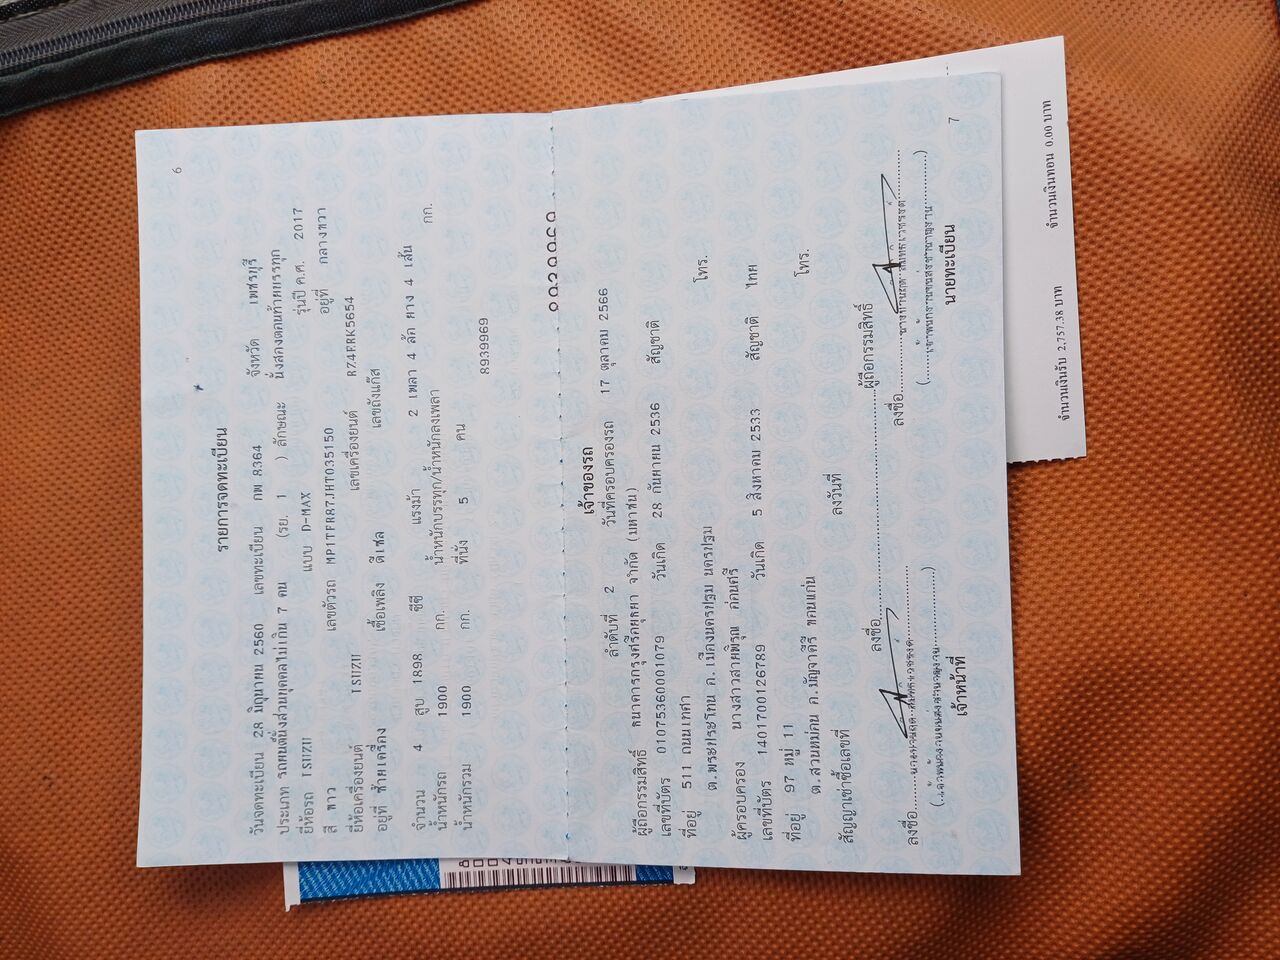 6
รายการจดทะเบียน
วันจดทะเบียน 28 มิถุนายน 2560 เลขทะเบียน กพ 8364 จังหวัด เพชรบุรี
ประเภท รถยนต์นั่งส่วนบุคคลไม่เกิน 7 คน (รย. 1 ) ลักษณะ นั่งสองตอนท้ายบรรทุก
ยี่ห้อรถ ISUZU แบบ D-MAX รุ่นปี ค.ศ. 2017
สี ขาว เลขตัวรถ MP1TFR87JHT035150 อยู่ที่ กลางขวา
ยี่ห้อเครื่องยนต์ ISUZU เลขเครื่องยนต์ RZ4ERK5654
อยู่ที่ ซ้ายเครื่อง เชื้อเพลิง ดีเซล เลขถังแก๊ส
จำนวน 4 สูบ 1898 ซีซี แรงม้า 2 เพลา 4 ล้อ ยาง 4 เส้น
น้ำหนักรถ 1900 กก. น้ำหนักบรรทุก/น้ำหนักลงเพลา กก.
น้ำหนักรวม 1900 กก. ที่นั่ง 5 คน
8939969
เจ้าของรถ
ลำดับที่ 2 วันที่ครอบครองรถ 17 ตุลาคม 2566
ผู้ถือกรรมสิทธิ์ ธนาคารกรุงศรีอยุธยา จำกัด (มหาชน)
เลขที่บัตร 0107536001079 วันเกิด 28 กันยายน 2536 สัญชาติ
ที่อยู่ 511 ถนนเทศา โทร.
ต.พระประโทน อ.เมืองนครปฐม นครปฐม
ผู้ครอบครอง นางสาวสายพิรุณ ก่อนศรี
เลขที่บัตร 1401700126789 วันเกิด 5 สิงหาคม 2533 สัญชาติ ไทย
ที่อยู่ 97 หมู่ 11 โทร.
ต.สวนหม่อน อ.มัญจาคีรี ขอนแก่น
สัญญาเช่าซื้อเลขที่ ลงวันที่
ลงชื่อ ผู้ถือกรรมสิทธิ์
ลงชื่อ
ลงชื่อ
เจ้าหน้าที่
นายทะเบียน
7
จำนวนเงินรับ 2,757.38 บาท จำนวนเงินทอน 0.00 บาท